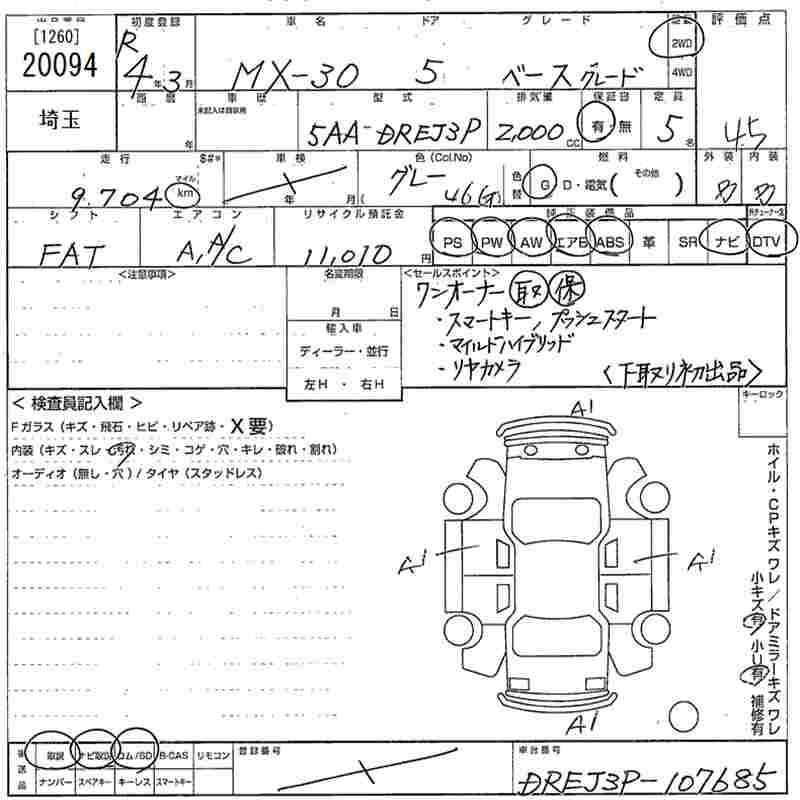 出品番号 初度登録 車名 ドア グレード 駆動 評価点
[1260]
20094
R
4年 3月 MX-30 5 ベースグレード 2WD
4WD
埼玉 歴 車歴 型式 排気量 保証書 定員
未記入は自家用
年 5AA-DREJ3P 2,000cc 有・無 5名 4.5
走行 $#* 車検 色(Col.No) 色替 燃料 外装 内装
9.704 マイル km 年 月( グレー 46G) G D・電気( その他 ) B B
シフト エアコン リサイクル預託金 純正装備品
FAT A,A/C 11,010円 PS PW AW エアB ABS 革 SR ナビ DTV
<注意事項> 名変期限 <セールスポイント>
月 日
ワンオーナー 取 保
・スマートキー, プッシュスタート
・マイルドハイブリッド
・リヤカメラ 〈下取り初出品〉
輸入車
ディーラー・並行
左H・右H
キーロック
< 検査員記入欄 >
Fガラス(キズ・飛石・ヒビ・リペア跡・X要)
内装(キズ・スレ・汚れ・シミ・コゲ・穴・キレ・破れ・割れ)
オーディオ(無し・穴)/タイヤ(スタッドレス)
A1
A1
A1
A1
ホイル・CPキズ ワレ/ドアミラーキズ ワレ
小キズ有 小U有 補修有
後送品 取説 ナビ取説 ロム/SD B-CAS リモコン
ナンバー スペアキー キーレス スマートキー
登録番号
車台番号
DREJ3P-107685